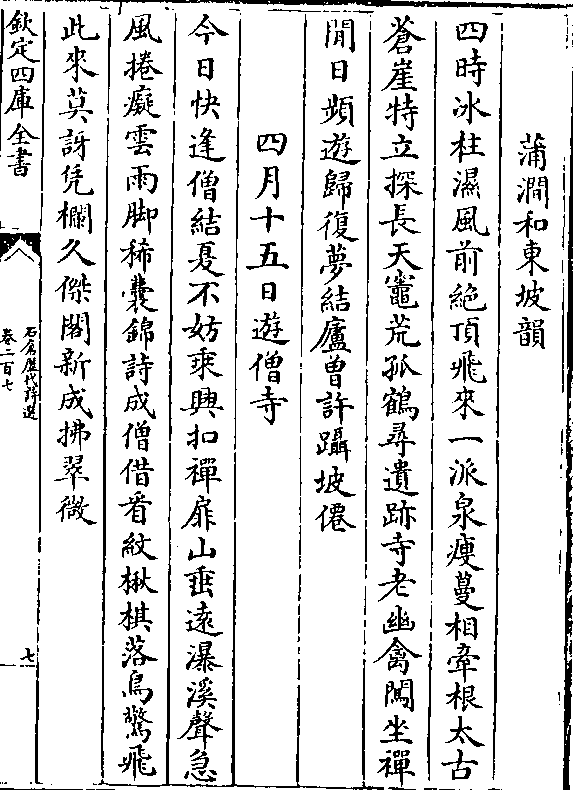 蒲澗和東坡韻
四時冰柱濕風前絶頂飛來一派泉瘦蔓相牽根太古
蒼崖特立探長天竈荒孤鶴尋遺跡寺老幽禽闖坐禪
閒日頻遊歸復夢結廬曾許躡坡僊
四月十五日遊僧寺
今日快逢僧結夏不妨乘興扣禪扉山垂遠瀑溪聲急
風捲癡雲雨脚稀囊錦詩成僧借看紋楸棋落鳥驚飛
此來莫訝凭欄久傑閣新成拂翠微
欽定四庫全書
石倉歷代詩選
卷二百七
七